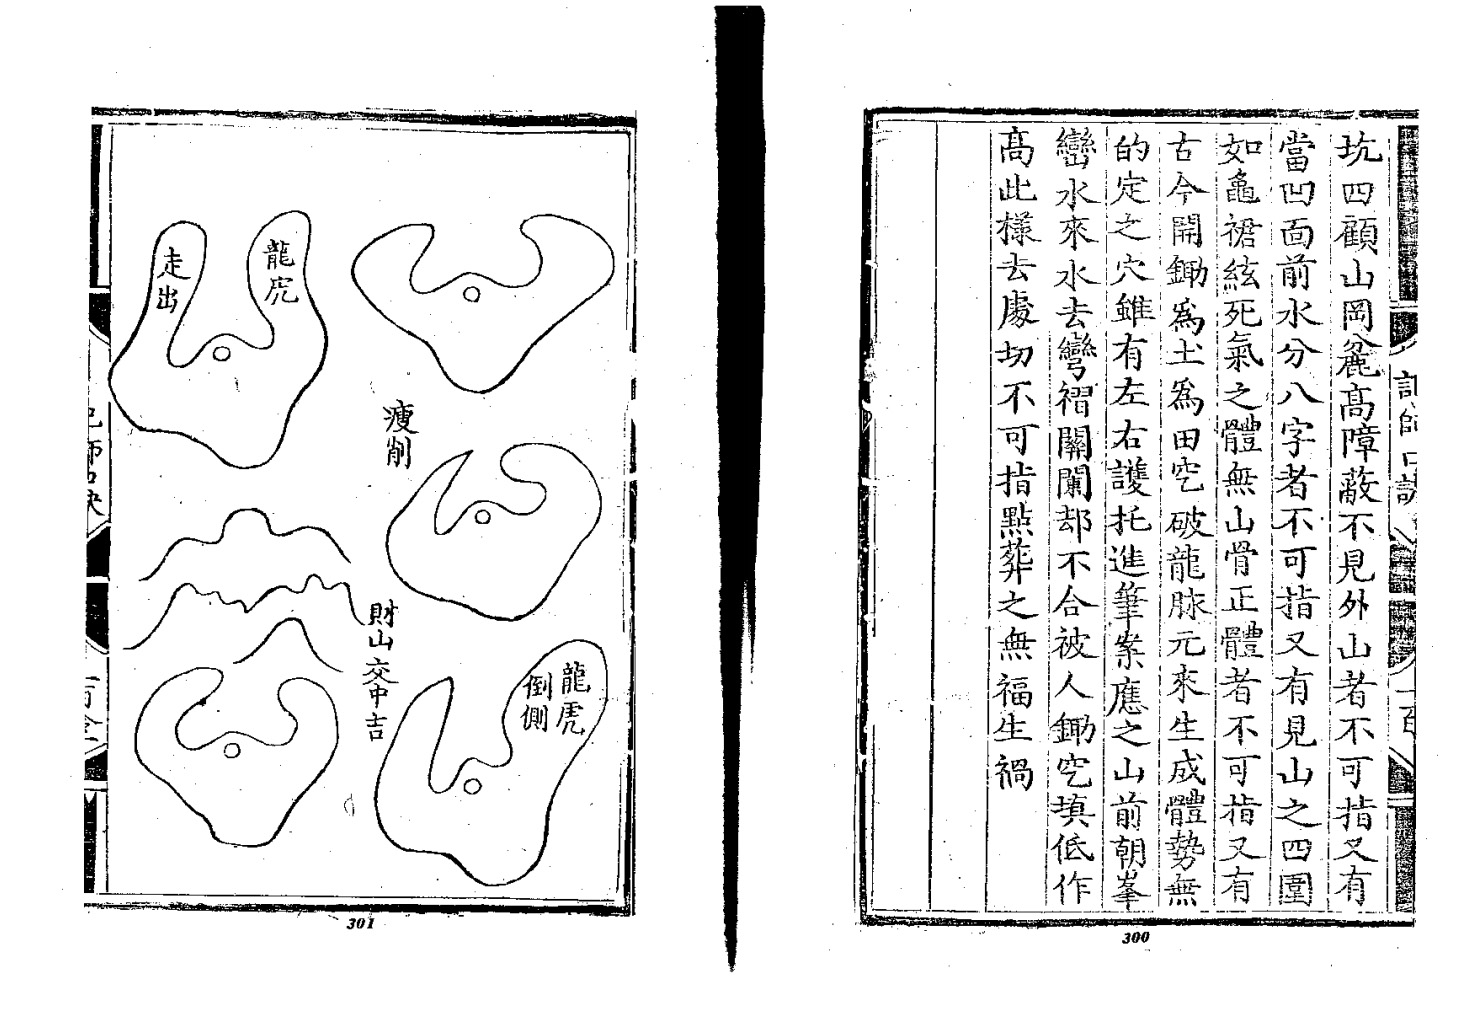 坑四顧山岡麄高障蔽不見外山者不可指又有
當凹面前水分八字者不可指又有見山之四圍
如龜裙絃死氣之體無山骨正體者不可指又有
古今開鋤爲土爲田空破龍脉元來生成體勢無
的定之穴雖有左右護托進筆案應之山前朝峯
巒水來水去彎褶關闌却不合被人鋤空填低作
高此樣去處切不可指點葬之無福生禍
300
龍虎
走出
瘦削
財山交中吉
龍虎
倒側
301